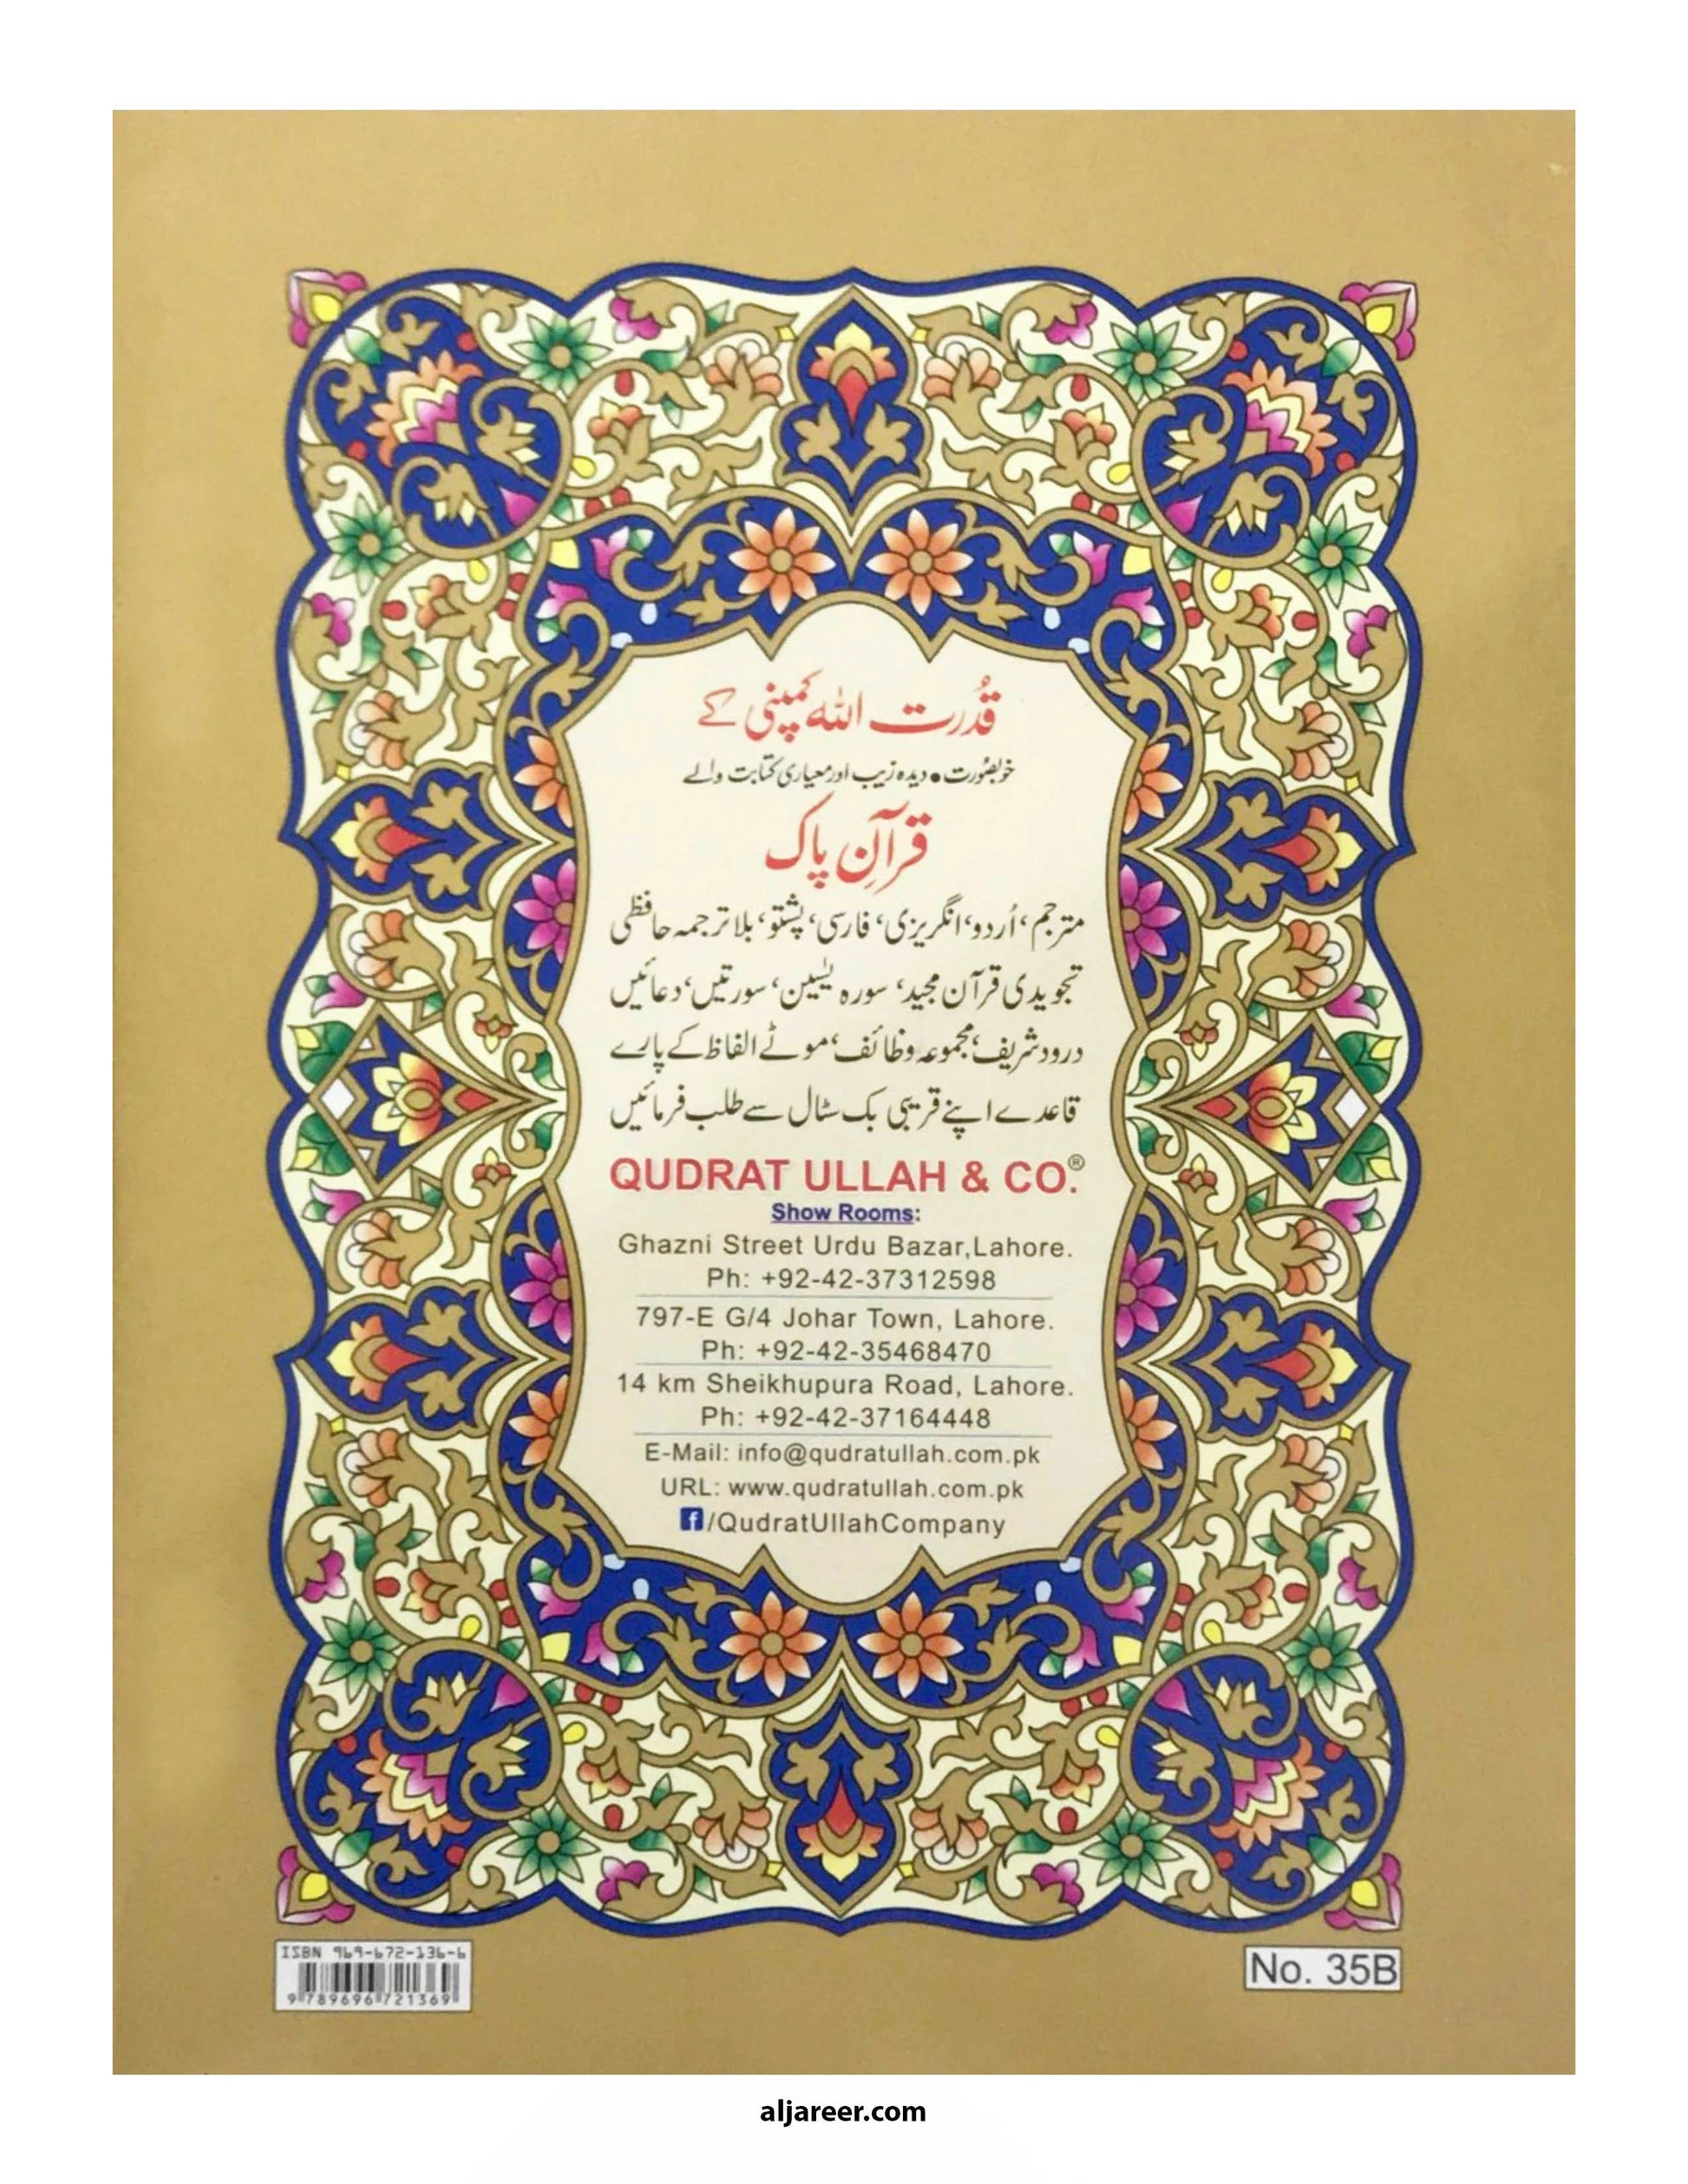 قُدرت اللہ کمپنی کے
خوبصُورت • دیدہ زیب اور معیاری کتابت والے
قرآنِ پاک
مترجم، اُردو، انگریزی، فارسی، پشتو، بلا ترجمہ حافظی
تجویدی قرآن مجید، سورہ یٰسین، سورتیں، دعائیں
درود شریف، مجموعہ وظائف، موٹے الفاظ کے پارے
قاعدے اپنے قریبی بک سٹال سے طلب فرمائیں
QUDRAT ULLAH & CO.®
Show Rooms:
Ghazni Street Urdu Bazar,Lahore.
Ph: +92-42-37312598
797-E G/4 Johar Town, Lahore.
Ph: +92-42-35468470
14 km Sheikhupura Road, Lahore.
Ph: +92-42-37164448
E-Mail: info@qudratullah.com.pk
URL: www.qudratullah.com.pk
f/QudratUllahCompany
ISBN 969-672-136-6
9 789696 721369
No. 35B
aljareer.com